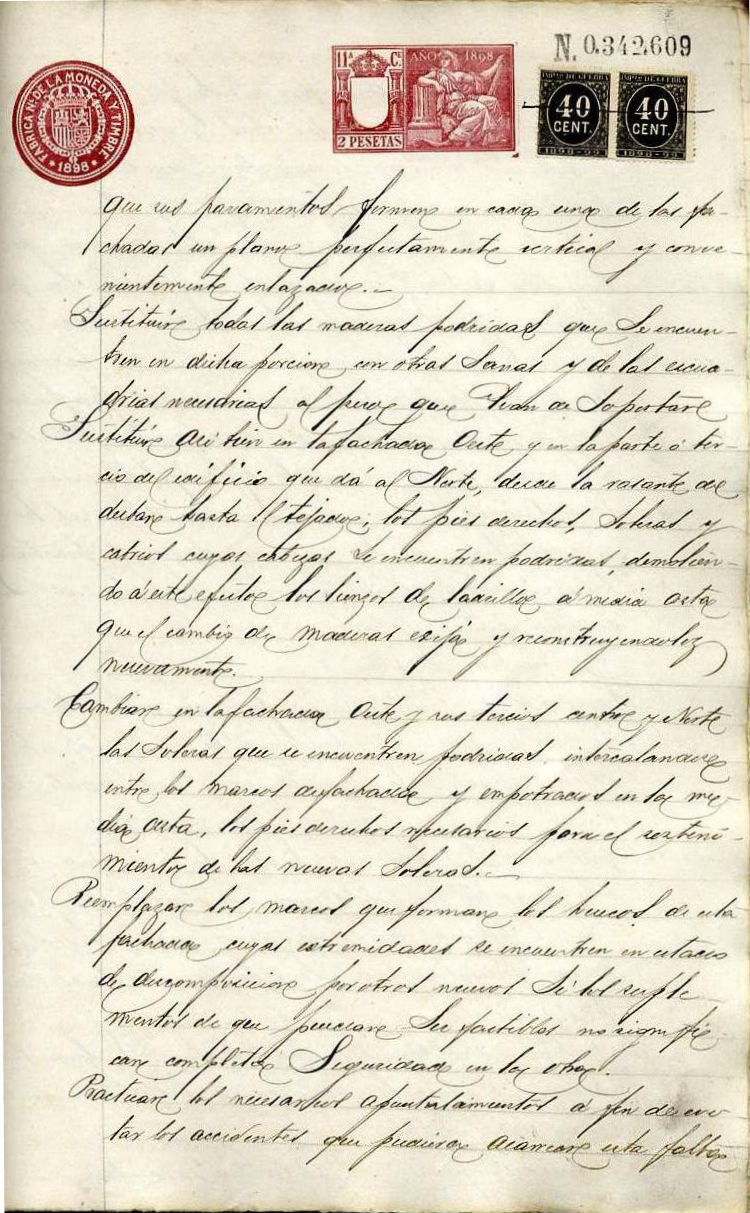 N. 0.342,609
FABRICA Nal. DE LA MONEDA Y TIMBRE
* 1898 *
11ª Cs
AÑO 1898
2 PESETAS
IMPto. DE GUERRA
40
CENT.
1898-99
IMPto. DE GUERRA
40
CENT.
1898-99
que sus paramentos formen en cada una de las fa-
chadas un plano perfectamente vertical y conve-
nientemente enlazados.
Sustituir todas las maderas podridas que se encuen-
tren en dicha porcion con otras sanas y de las escua-
drias necesarias al peso que han de soportar
Sustituir asi bien en la fachada Oeste y en la parte ó ter-
cio del edificio que dá al Norte, desde la rasante del
desban hasta el tejado; los pies derechos, soleras y
cabrios cuyas cabezas se encuentren podridas, demolien-
do á este efecto los lienzos de ladrillo á media asta
que el cambio de maderas exija y reconstruyendolos
nuevamente.
Cambiar en la fachada Oeste y sus tercios centro y Norte
las soleras que se encuentren podridas, intercalandose
entre los marcos de fachada y empotrados en la me-
dia asta, los pies derechos necesarios para el sosteni-
miento de las nuevas soleras.
Reemplazar los marcos que forman los huecos de esta
fachada cuyas estremidades se encuentren en estado
de descomposicion por otros nuevos si los suple-
mentos de que pudieran ser factibles no signifi-
can completa seguridad en la obra.
Practicar los necesarios apuntalamientos á fin de evi-
tar los accidentes que pudiera acarrear esta falta